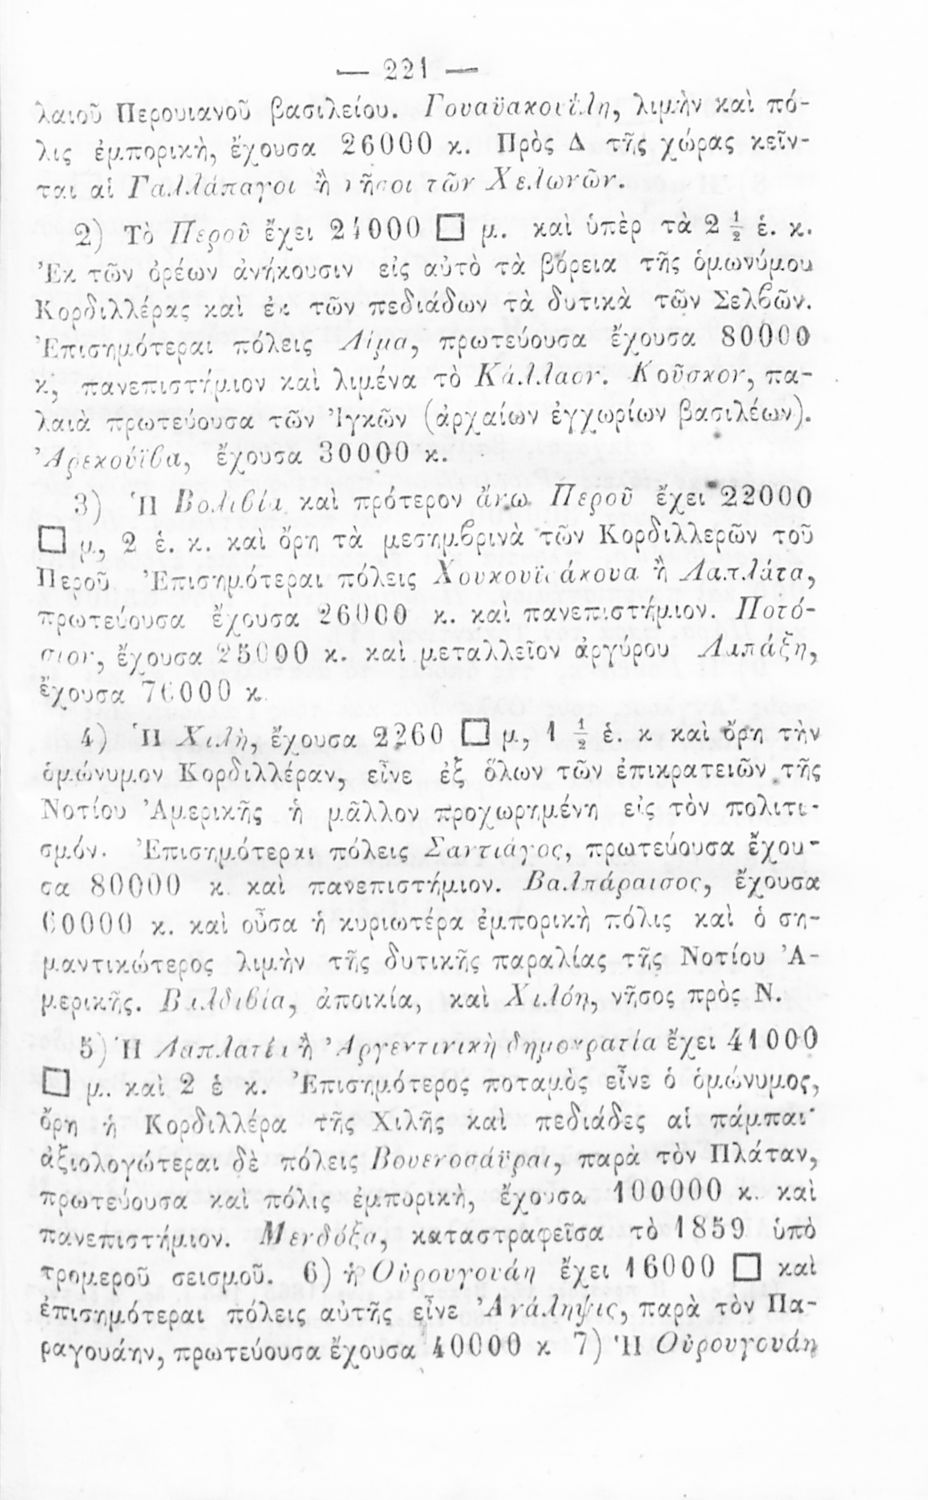 — 221 —
λαιοῦ Περουιανοῦ βασιλείου. Γουαϋακουΐλη, λιμὴν καὶ πό-
λις ἐμπορικὴ, ἔχουσα 26000 κ. Πρὸς Δ τῆς χώρας κεῖν-
ται αἱ Γαλλάπαγοι ἢ νῆσοι τῶν Χελωνῶν.
2) Τὸ Περοῦ ἔχει 24000 □ μ. καὶ ὑπὲρ τὰ 2 ½ ἑ. κ.
Ἐκ τῶν ὀρέων ἀνήκουσιν εἰς αὐτὸ τὰ βόρεια τῆς ὁμωνύμου
Κορδιλλέρας καὶ ἐκ τῶν πεδιάδων τὰ δυτικὰ τῶν Σελβῶν.
Ἐπισημότεραι πόλεις Λίμα, πρωτεύουσα ἔχουσα 80000
κ, πανεπιστήμιον καὶ λιμένα τὸ Κάλλαον. Κοῦσκον, πα-
λαιὰ πρωτεύουσα τῶν Ἰγκῶν (ἀρχαίων ἐγχωρίων βασιλέων).
Ἀρεκούϊβα, ἔχουσα 30000 κ.
3) Ἡ Βολιβία καὶ πρότερον ἄνω Περοῦ ἔχει 22000
□ μ, 2 ἑ. κ. καὶ ὄρη τὰ μεσημβρινὰ τῶν Κορδιλλερῶν τοῦ
Περοῦ Ἐπισημότεραι πόλεις Χουκουϊσάκουα ἢ Λαπλάτα,
πρωτεύουσα ἔχουσα 26000 κ. καὶ πανεπιστήμιον. Ποτό-
σιον, ἔχουσα 25000 κ. καὶ μεταλλεῖον ἀργύρου Λαπάζη,
ἔχουσα 76000 κ
4) Ἡ Χιλὴ, ἔχουσα 2260 □ μ, 1 ½ ἑ. κ καὶ ὄρη τὴν
ὁμώνυμον Κορδιλλέραν, εἶνε ἐξ ὅλων τῶν ἐπικρατειῶν τῆς
Νοτίου Ἀμερικῆς ἡ μᾶλλον προχωρημένη εἰς τὸν πολιτι-
σμόν. Ἐπισημότεραι πόλεις Σαντιάγος, πρωτεύουσα ἔχου-
σα 80000 κ καὶ πανεπιστήμιον. Βαλπάραισος, ἔχουσα
60000 κ. καὶ οὖσα ἡ κυριωτέρα ἐμπορικὴ πόλις καὶ ὁ ση-
μαντικώτερος λιμὴν τῆς δυτικῆς παραλίας τῆς Νοτίου Ἀ-
μερικῆς. Βαλδιβία, ἀποικία, καὶ Χιλόη, νῆσος πρὸς Ν.
5) Ἡ Λαπλατία ἢ Ἀργεντινικὴ δημοκρατία ἔχει 41000
□ μ. καὶ 2 ἑ κ. Ἐπισημότερος ποταμὸς εἶνε ὁ ὁμώνυμος,
ὄρη ἡ Κορδιλλέρα τῆς Χιλῆς καὶ πεδιάδες αἱ πάμπαι·
ἀξιολογώτεραι δὲ πόλεις Βουενοσάϋραι, παρὰ τὸν Πλάταν,
πρωτεύουσα καὶ πόλις ἐμπορικὴ, ἔχουσα 100000 κ. καὶ
πανεπιστήμιον. Μενδόζα, καταστραφεῖσα τὸ 1859 ὑπὸ
τρομεροῦ σεισμοῦ. 6) ἡ Οὐρουγουάη ἔχει 16000 □ καὶ
ἐπισημότεραι πόλεις αὐτῆς εἶνε Ἀνάληψις, παρὰ τὸν Πα-
ραγουάην, πρωτεύουσα ἔχουσα 40000 κ 7) Ἡ Οὐρουγουάη